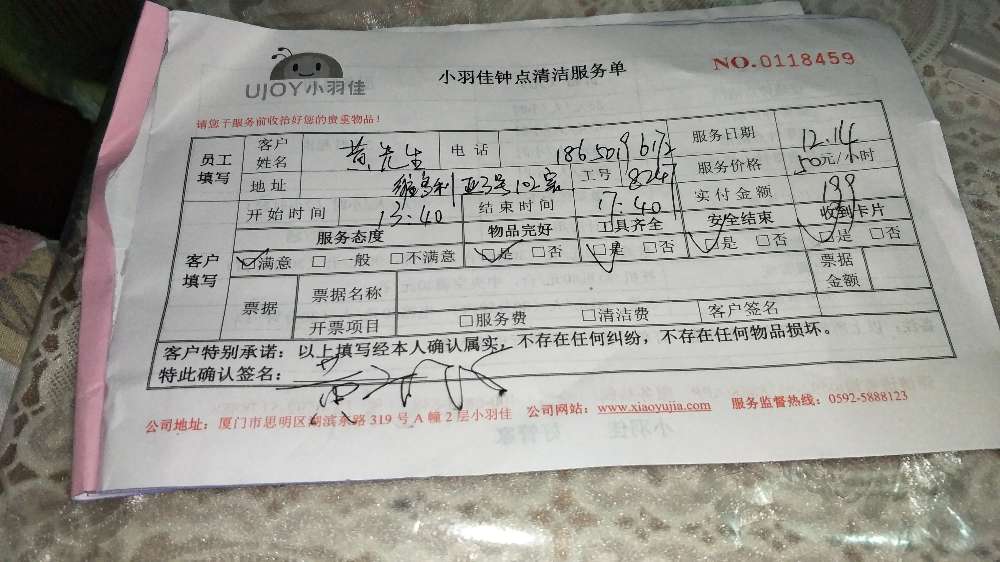 UJOY小羽佳
小羽佳钟点清洁服务单
NO.0118459
请您于服务前收拾好您的贵重物品！
员工填写 客户姓名 黄先生 电话 服务日期 12.14
地址 102室 工号 8247 服务价格 50元/小时
客户填写 开始时间 13:40 结束时间 17:40 实付金额 199
服务态度 物品完好 工具齐全 安全结束 收到卡片
☑满意 □ 一般 □不满意 ☑是 □否 ☑是 □否 ☑是 □否 ☑是 □否
票据 票据名称 票据金额
开票项目 □服务费 □清洁费 客户签名
客户特别承诺：以上填写经本人确认属实，不存在任何纠纷，不存在任何物品损坏。
特此确认签名：
公司地址：厦门市思明区湖滨东路319号A幢2层小羽佳 公司网站：www.xiaoyujia.com 服务监督热线：0592-5888123